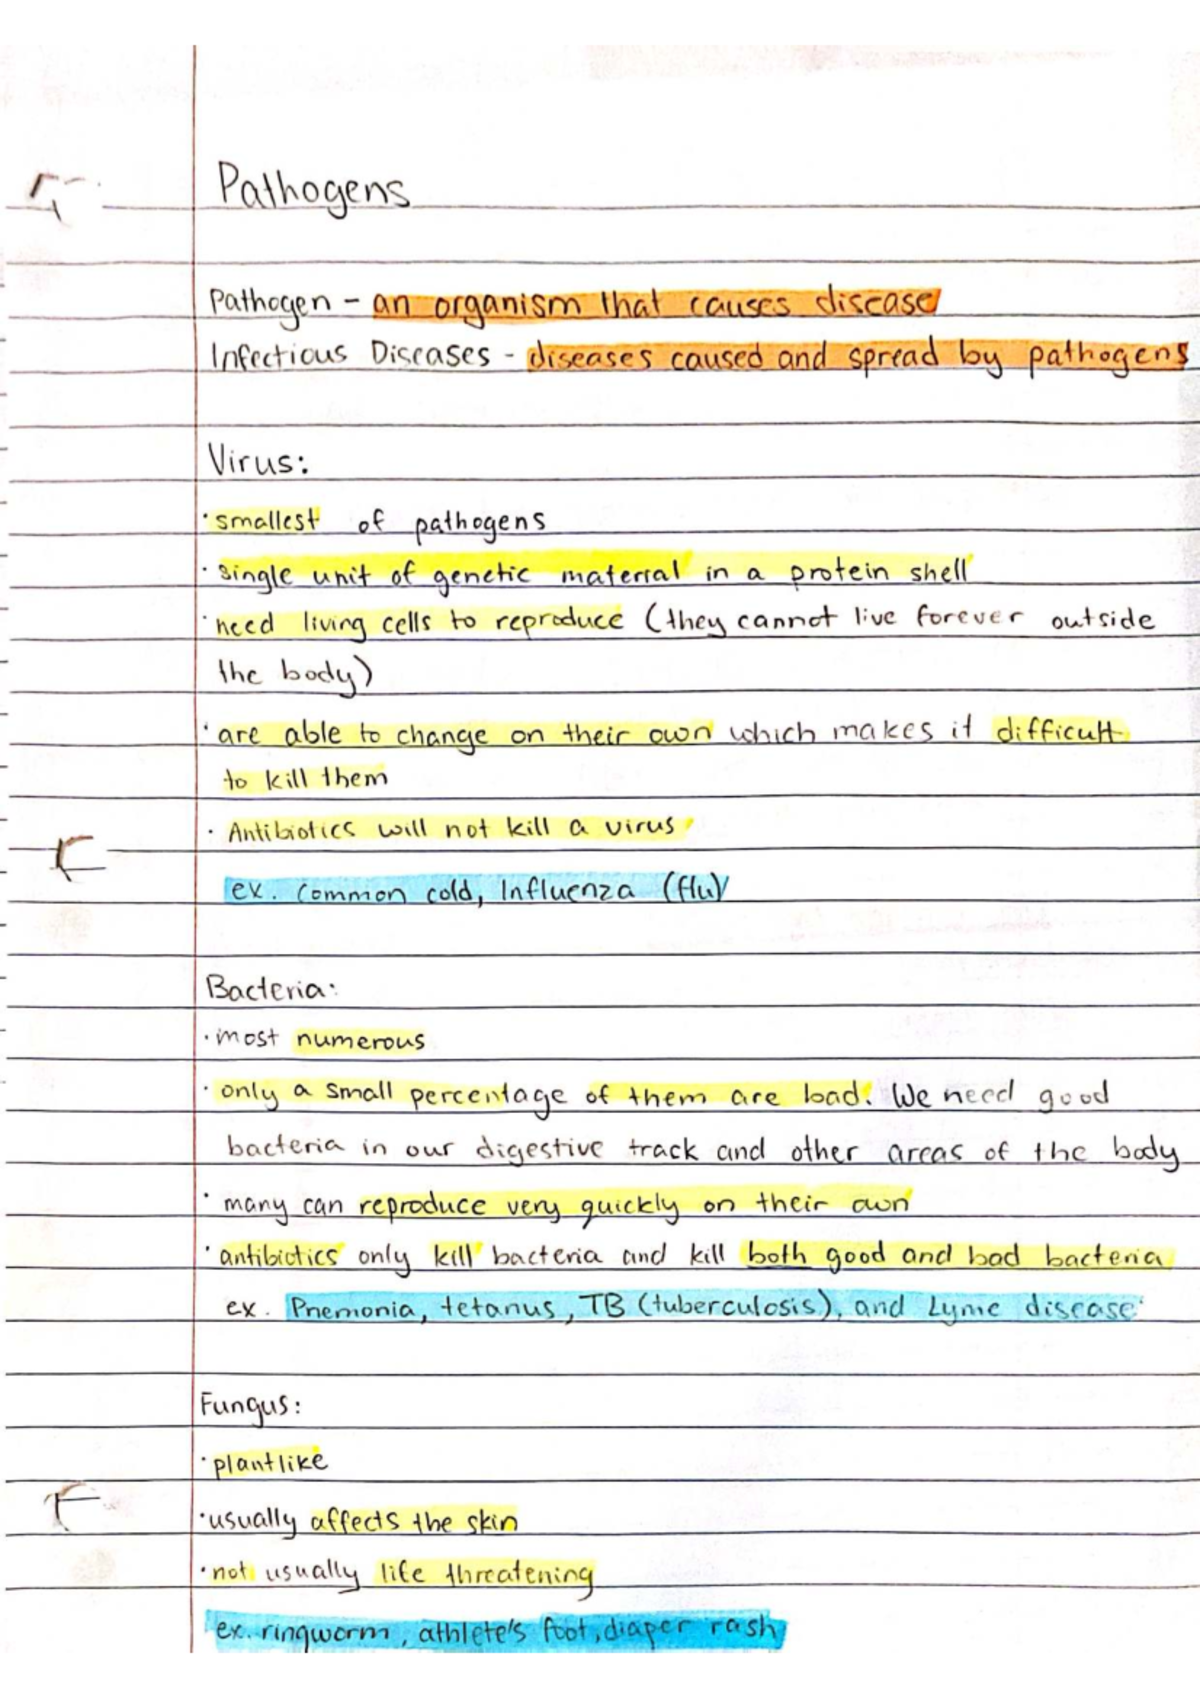 Pathogens
Pathogen - an organism that causes disease
Infectious Diseases - diseases caused and spread by pathogens
Virus:
· smallest of pathogens
· single unit of genetic material in a protein shell
· need living cells to reproduce (they cannot live forever outside
the body)
· are able to change on their own which makes it difficult
to kill them
· Antibiotics will not kill a virus
ex. Common cold, Influenza (flu)
Bacteria:
· most numerous
· only a small percentage of them are bad. We need good
bacteria in our digestive track and other areas of the body
· many can reproduce very quickly on their own
· antibiotics only kill bacteria and kill both good and bad bacteria
ex. Pnemonia, tetanus, TB (tuberculosis), and Lyme disease
Fungus:
· plantlike
· usually affects the skin
· not usually life threatening
ex. ringworm, athlete's foot, diaper rash